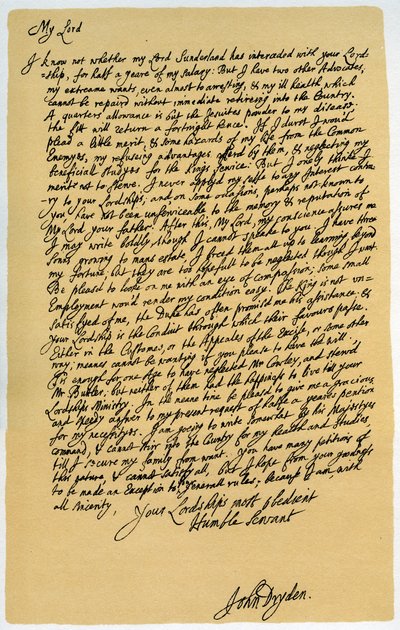 My Lord
I know not whether my Lord Sunderland has interceded with your Lord=
=ship, for half a yeare of my salary: But I have two other Advocates,
my extreame wants, even almost to arresting, & my ill health which
cannot be repaird without immediate retireing into the Country.
A quarters allowance is but the Jesuites powder to my disease;
the fitt will return a fortnight hence. If I durst I wou'd
plead a little merit, & some hazards of my life from the Common
Enemyes, my refuseing advantages offerd by them, & neglecting my
beneficiall studyes for the King's service: But I onely thinke I
merit not to sterve. I never applyd my selfe to any Interest contra=
=ry to your Lordship's; and on some occasions, perhaps not known to
you, have not been unserviceable to the memory & reputation of
My Lord your father. After this, My Lord, my conscience assures me
I may write boldly though I cannot speake to you. I have three
Sonns growing to mans estate, I breed them all up to learning, beyond
my fortune; but they are too hopefull to be neglected though I want.
Be pleasd to looke on me with an eye of compassion; some small
Employment wou'd render my condition easy. The King is not un=
satisfyed of me, the Duke has often promisd me his assistance; &
Your Lordship is the Conduit through which their favours passe.
Either in the Customes, or the Appeales of the Excise, or some other
way; means cannot be wanting if you please to have the will.
Tis enough for one Age to have neglected Mr Cowley, and sterv'd
Mr Butler; but neither of them had the happiness to live till your
Lordships Ministry. In the meane time be pleasd to give me a gracious
and speedy answer to my present request of halfe a yeares pention
for my necessityes. I am goeing to write somewhat by his Majestyes
command, & cannot stirr into the Country for my health and studies,
till I secure my family from want. You have many petitions of
this nature, & cannot satisfy all, but I hope from your goodness
to be made an Exception to your generall rules; because I am, with
all sincerity,
Your Lordships most obedient
Humble Servant
John Dryden.